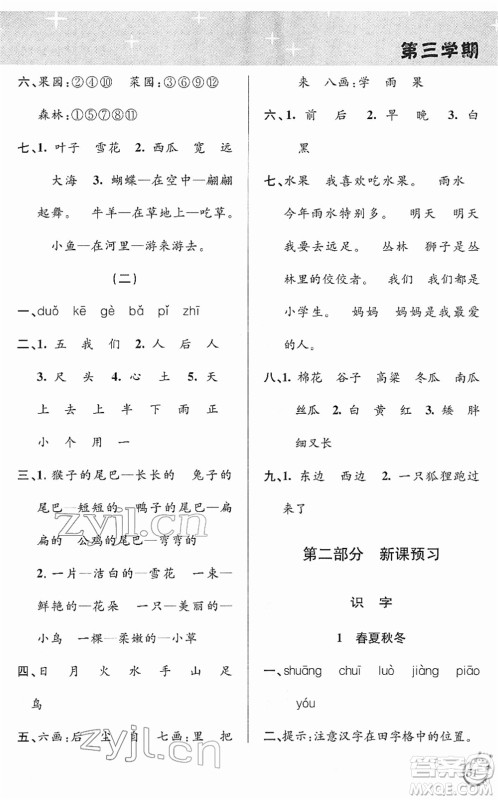 第三学期
六、果园:②④⑩　菜园:③⑥⑨⑫
森林:①⑤⑦⑧⑪
七、1. 叶子　雪花　2. 西瓜　宽　远
大海　3. 蝴蝶—在空中—翩翩
起舞。　牛羊—在草地上—吃草。
小鱼—在河里—游来游去。
(二)
一、duǒ　kē　gè　bǎ　pǐ　zhī
二、1. 五　我　们　2. 人　后　人
3. 尺　头　4. 心　土　5. 木
上　去　上　半　方　正　6. 水
小　个　用　一
三、1. 猴子的尾巴—长长的　兔子的
尾巴—短短的　鸭子的尾巴—扁
扁的　公鸡的尾巴—弯弯的
2. 一片—洁白的—雪花　一束—
鲜艳的—花朵　一只—可爱的—
小鸟　一棵—柔嫩的—小草
四、日　月　火　水　手　山　足
鸟
五、六画:后　尘　自　七画:里　把
来　八画:学　雨　果
六、1. 前　后　2. 早　晚　3. 白
黑
七、水果　我喜欢吃水果。　雨水
今年雨水特别多。　明天　明天
我要去远足。　丛林　狮子是丛
林里的佼佼者。　我们　我们都是
小学生。　妈妈　妈妈是我最爱
的人。
八、1. 棉花　谷子　高粱　冬瓜　南瓜
丝瓜　2. 白　黄　红　3. 矮　胖
细又长
九、1. 东边　西边　2. 一只狐狸跑过
来了
第二部分　新课预习
识　字
1　春夏秋冬
一、shuāng　chuī　luò　jiàng　piāo
yóu
二、提示:注意汉字在田字格中的位置。
zyjl.cn
zyjl.cn
答案圈